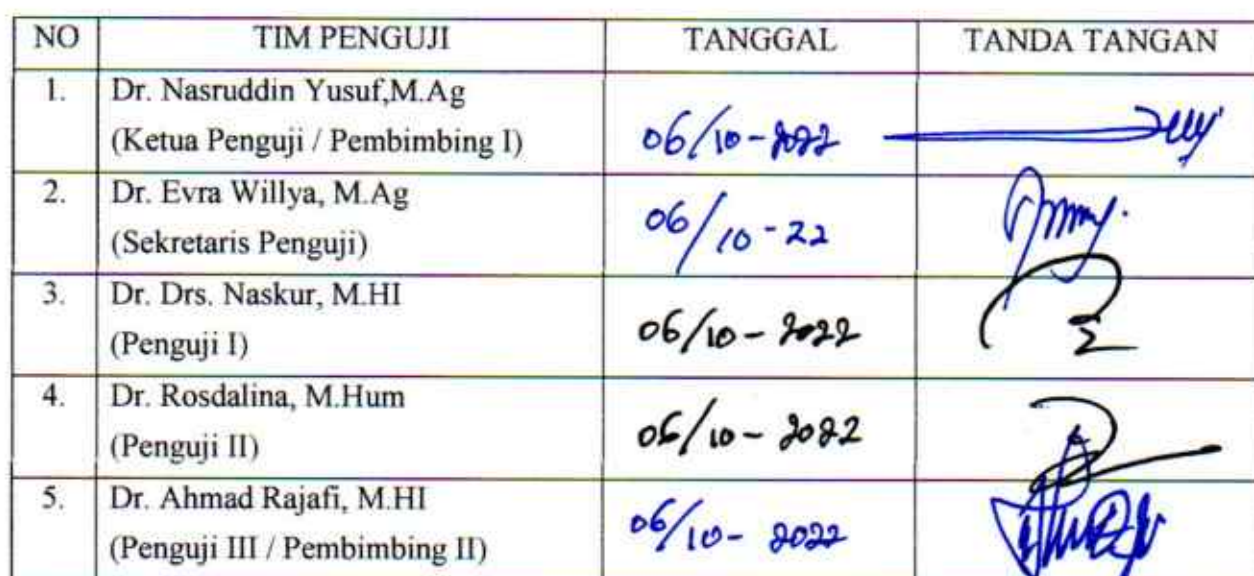 NO TIM PENGUJI TANGGAL TANDA TANGAN
1. Dr. Nasruddin Yusuf,M.Ag
(Ketua Penguji / Pembimbing I) 06/10-2022
2. Dr. Evra Willya, M.Ag
(Sekretaris Penguji) 06/10-22
3. Dr. Drs. Naskur, M.HI
(Penguji I) 06/10-2022
4. Dr. Rosdalina, M.Hum
(Penguji II) 06/10-2022
5. Dr. Ahmad Rajafi, M.HI
(Penguji III / Pembimbing II) 06/10-2022